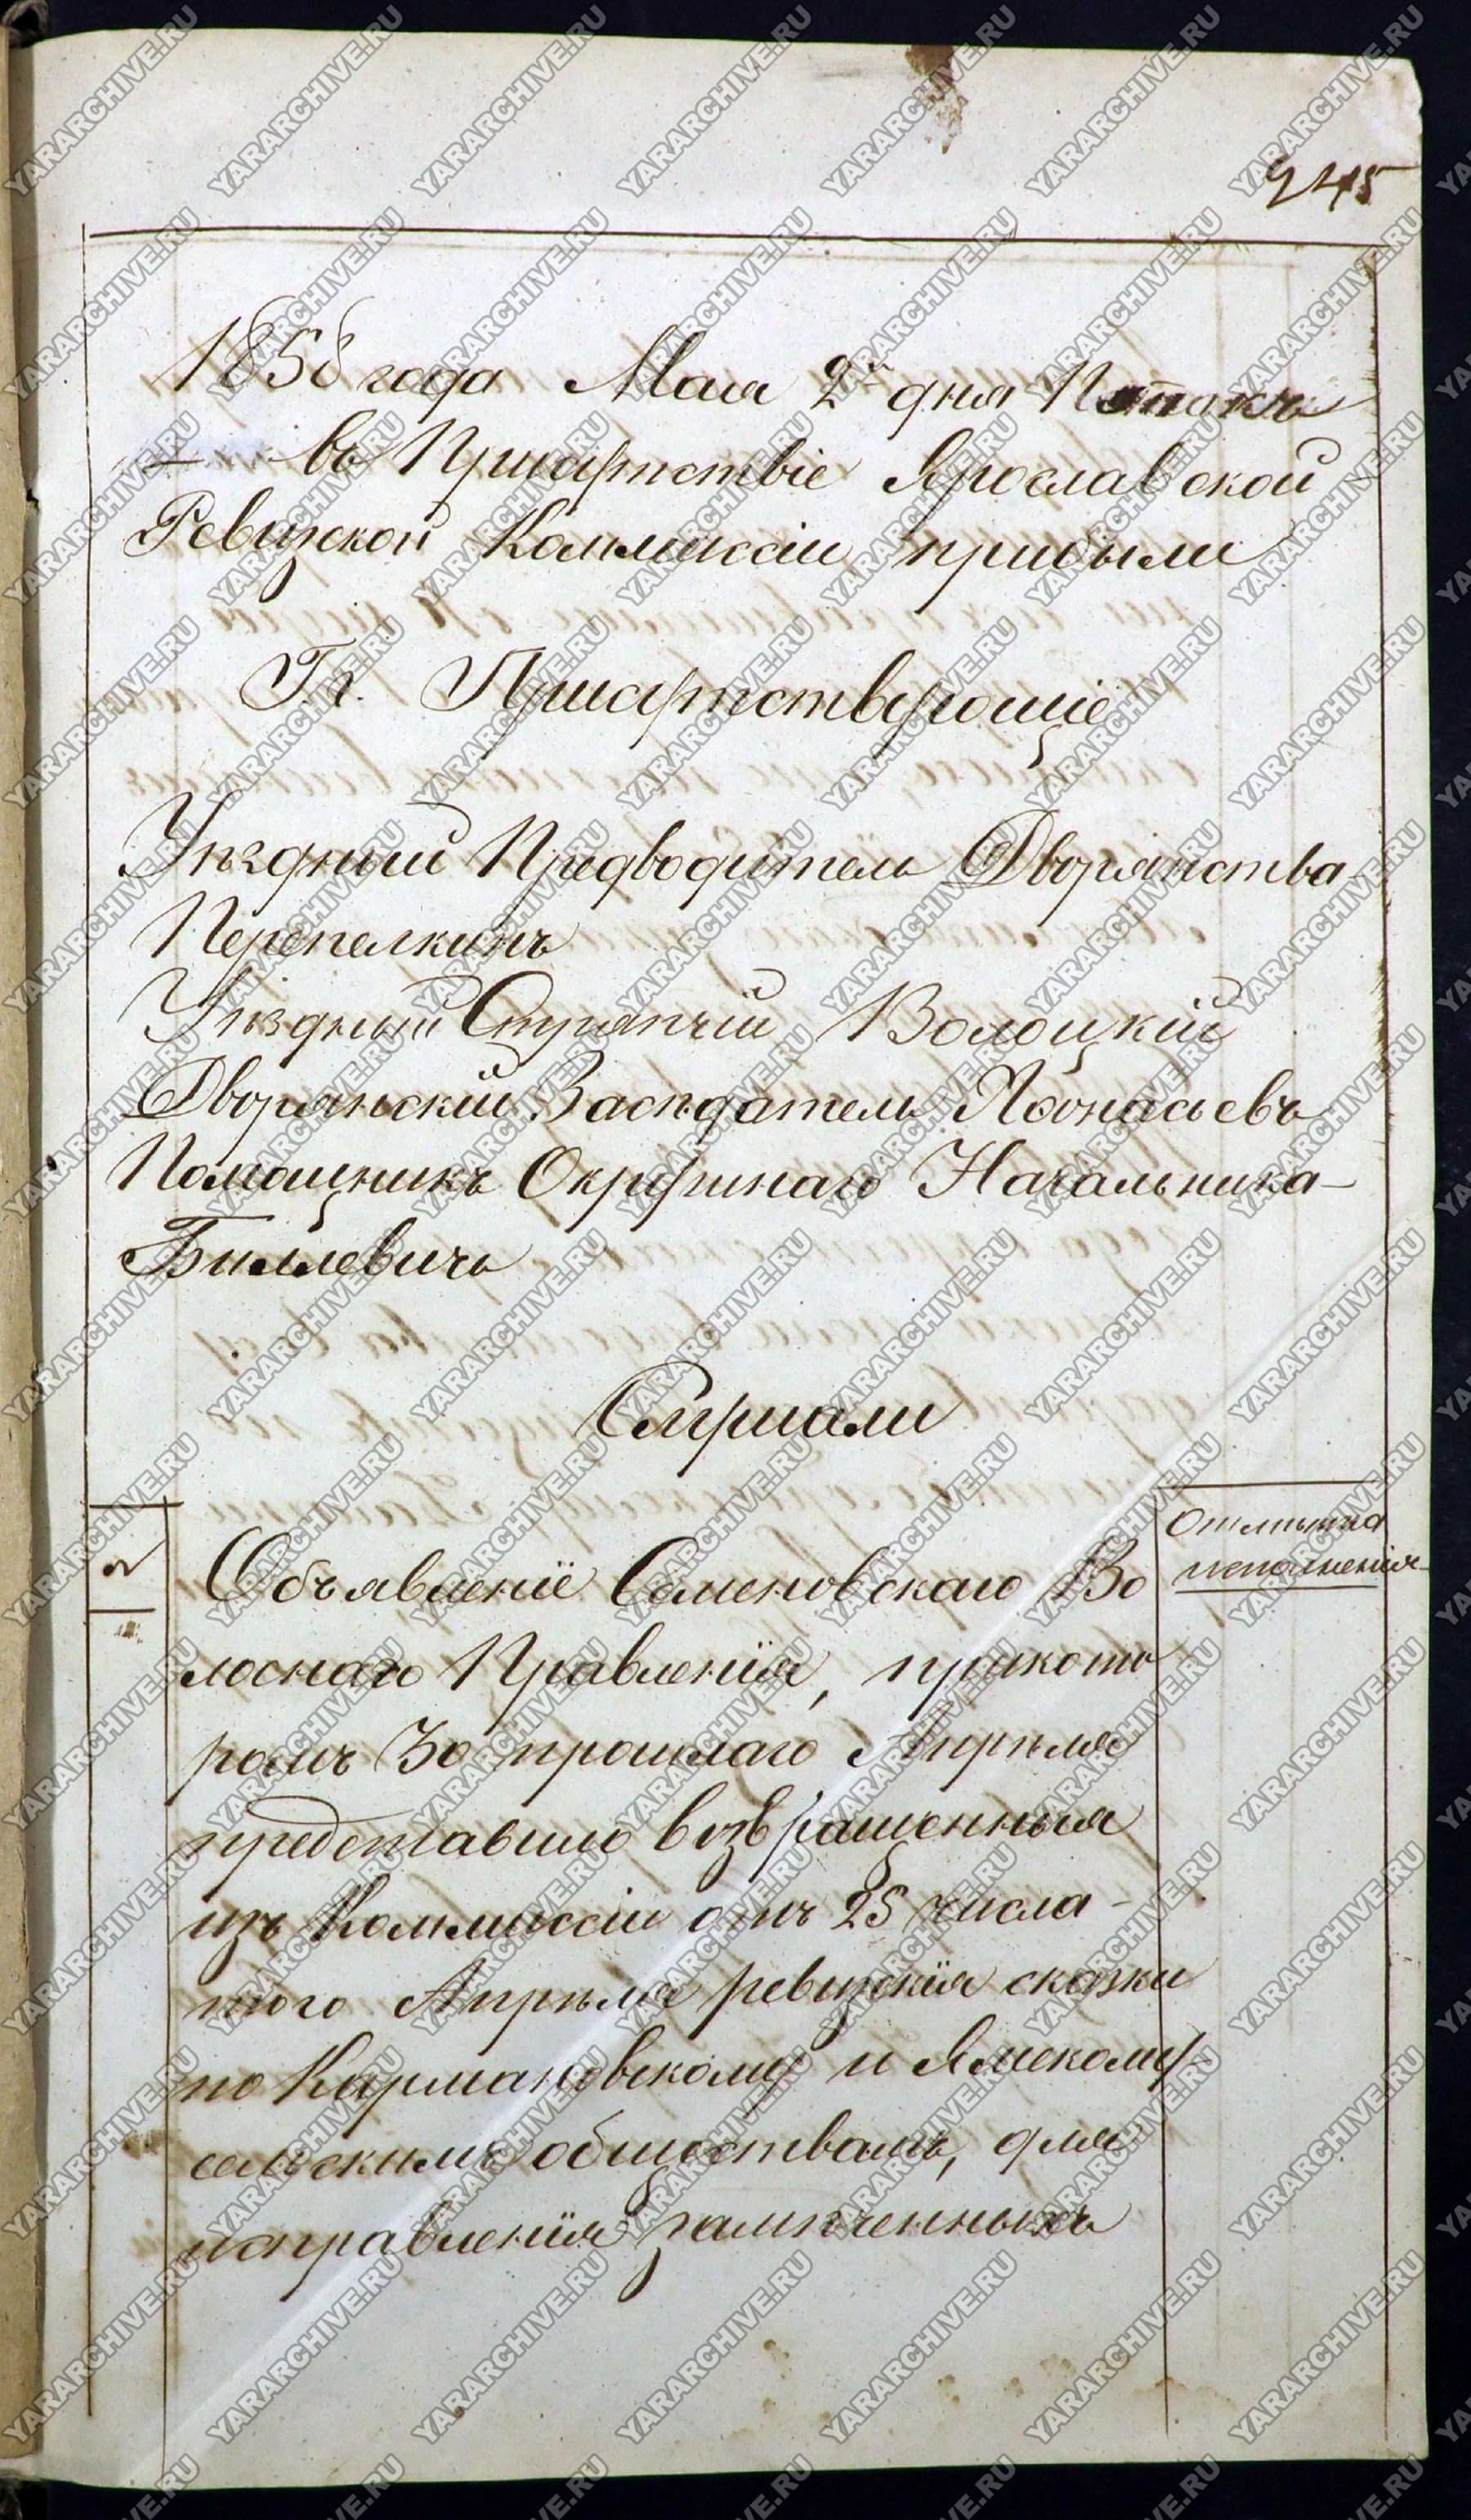 245
1858 года Мая 2го дня Пятокъ
въ Присутствіе Ярославской
Ревизской Коммиссіи прибыли
Гг. Присутствующіе
Уѣздный Предводитель Дворянства
Перепелкинъ
Уѣздный Стряпчій Волоцкій
Дворянскій Засѣдатель Афонасьевъ
Помощникъ Окружнаго Начальника
Биллевичь
Слушали
Отмѣтка
исполненія
2
Объявленіе Семеновскаго Во
лоснаго Правленія, прикото
ромъ 30 прошлаго Апрѣля
представило возвращенныя
изъ Коммиссіи отъ 25 числа
того Апрѣля ревизскія сказки
по Кармановскому и Ямскому
сельскимъ обществамъ, для
исправленія замѣченныхъ
YARARCHIVE.RU